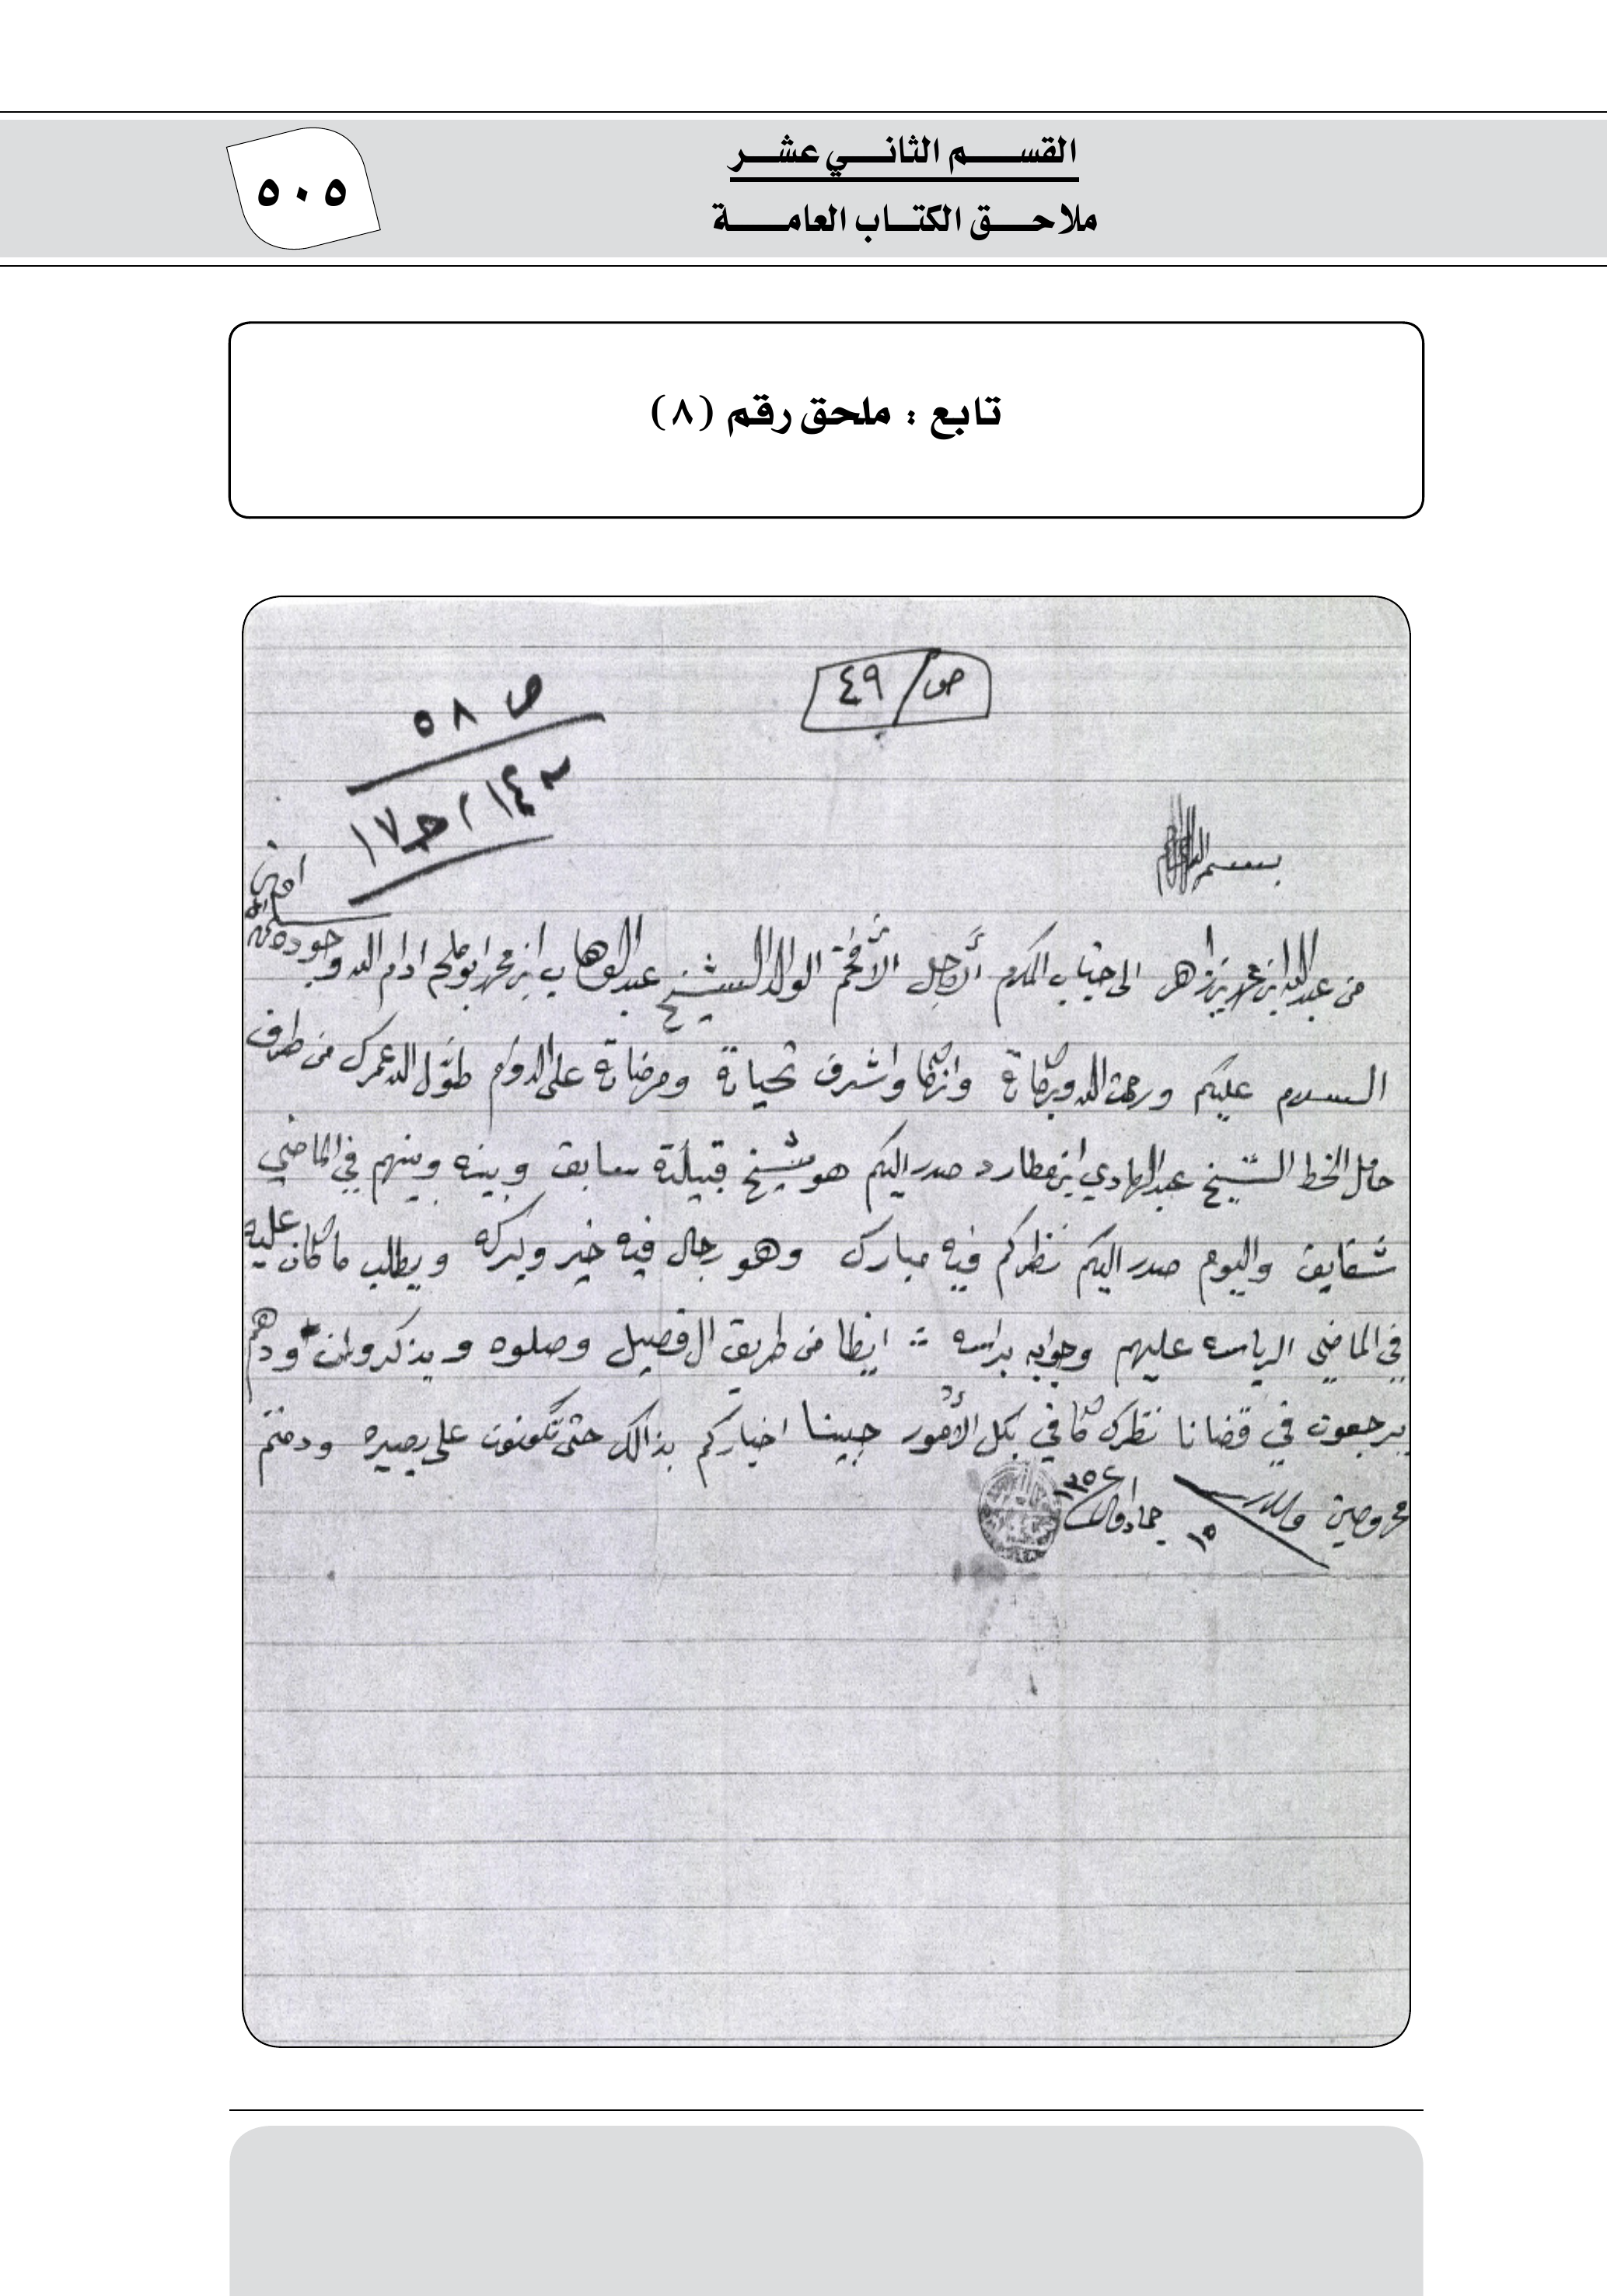 القسم الثاني عشر
ملاحق الكتاب العامة
٥٠٥
تابع : ملحق رقم (٨)
ص/ ٤٩
ص ٥٨
بسم الله
امين
من عبدالله ابن محمد بن زاهر الى جناب المكرم الأجل الأفخم الوالد الشيخ عبدالوهاب ابن محمد ابو ملحه ادام الله وجوده
السلام عليكم ورحمت الله وبركاتة وازكا واشرف تحياتة ومرضاتة على الدوام طوّل الله عمرك من طرف
حامل الخط الشيخ عبدالهادي ابن عطارد صدر اليكم هو شيخ قبيلتة سابق وبينه وبينهم في الماضي
شقايق واليوم صدر اليكم نظركم فيه مبارك وهو رجال فيه خير وبركه ويطلب ما كان عليه
في الماضي الرياسه عليهم وجوابه براسه ايظا من طريق ال فصيل وصلوه ويذكرون ودهم
يرجعون في قضانا نظرك كافي بكل الأمور جبينا اخباركم بذالك حتى تكونون على بصيره ودمتم
محروصين والسلام
١٥ جماد ١٣٥٤